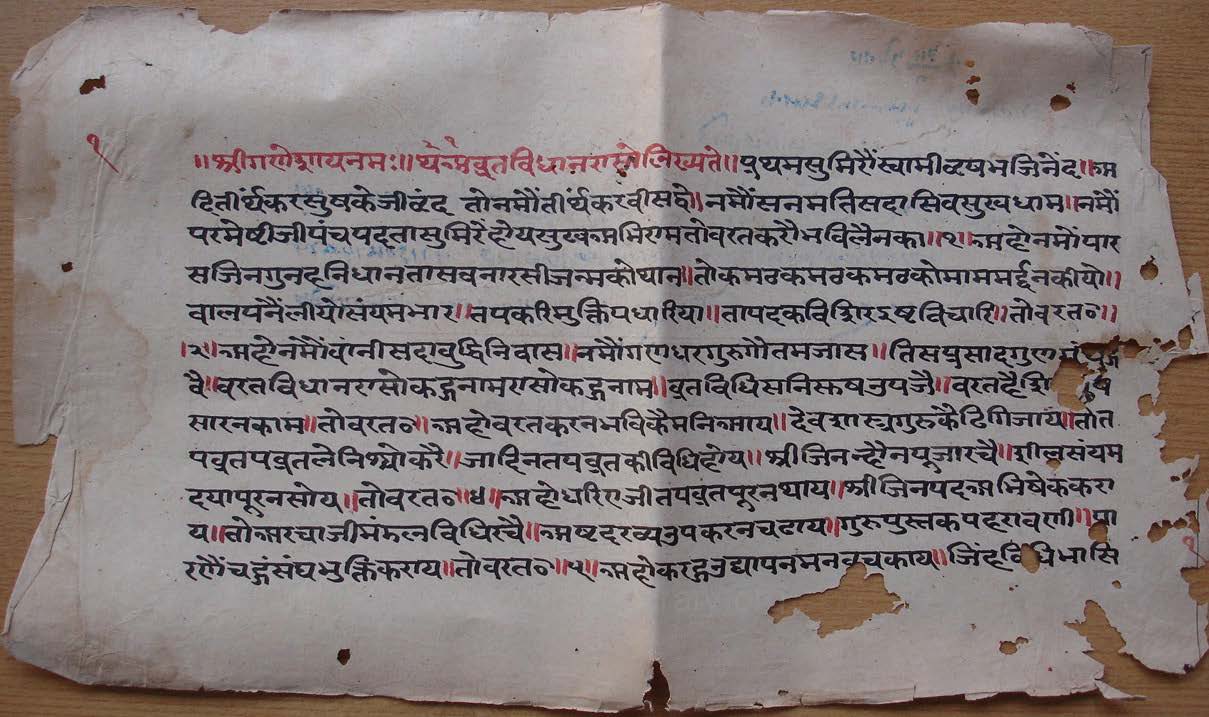 ॥श्रीगणेशायनमः॥ अथ व्रतविधानरासो लिख्यते॥ प्रथमसुमिरौंस्वामीवृषभजिनेंद॥अ
हितीर्थंकरसुषकेजीवृंद तोनमौंतीर्थंकरवीसवो।नमौंसनमतिसदासिवसुखधाम॥नमौं
परमेष्टीजीपंचपद्तासुमिरेंहोयसुखअभिरामतोवरतकरौभविलैनका॥१॥अहोनमोंपार
सजिनगुनहनिधानतासवनारसीजन्मकोथान॥तोकमठकमठकमठकोमाममर्द्दनकीयो॥
वालपनैंलीयोसंयमभार॥तपकरिमुक्तिपधारिया॥तापद् विचारि॥तोवरत०॥
।२॥अहोनमौंवांनीसदावुद्धिनिवास॥नमौंगणधरगुरुगौतमजास॥तिसप्रसाद
वै॥वरतविधानरासोकहूनामरासोकहूनाम॥व्रतविधिसनिसुषउपजै॥वरत
सारनकाम॥तोवरत०॥अहोवरतकरनभविकैमनिआय॥देवशास्त्रगुरुकैढिगिजाय॥तोत
पव्रतपव्रतलेनिश्चोकरै॥जादिनतपव्रतकीविधिहोय॥श्रीजिनन्हौनपूजारचै॥शीलसंयम
दयापूरनसोय॥तोवरत०॥४॥अहोधारि पव्रतपूरनथाय॥श्रीजिनपद्अभिषेककरा
य॥तोआरचाजीमंडलविधिरचै॥अष्टदरव्यउपकरनचढाय॥गुरुपुस्तकपहरावणी॥पा
रणौंचहूंसंघभुक्तिकराय॥तोवरत०॥५॥अहोकरहूउद्यापनमनवचकाय॥